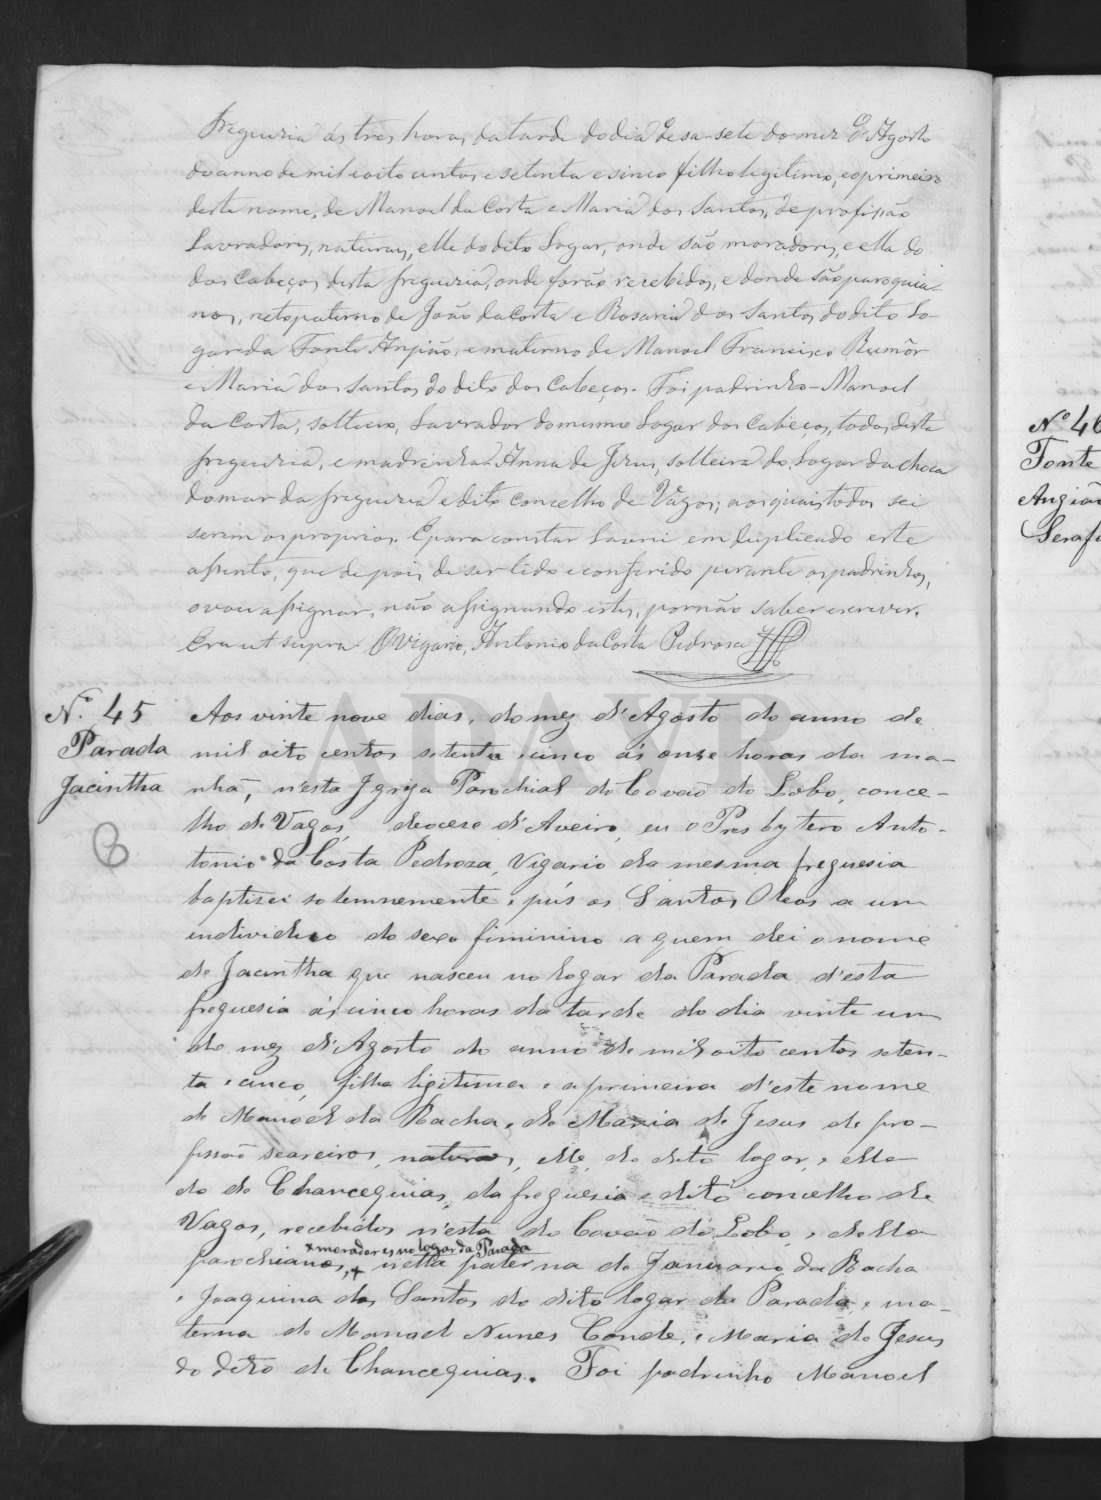 freguezia ás tres horas da tarde do dia desa-sete do mez d'Agosto
do anno de mil e oito centos e setenta e sinco filho legitimo, e o primeiro
deste nome, de Manoel da Costa e Maria dos Santos, de profissão
Lavradores, naturaes, elle do dito Logar, onde são moradores, e ella do
dos Cabeços, desta freguezia, onde forão recebidos, e donde são paroquia-
nos, neto paterno de João da Costa e Rosaria dos Santos do dito Lo-
gar da Fonte Anjião, e materno de Manoel Francisco Rumôr
e Maria dos Santos do dito dos Cabeços. Foi padrinho Manoel
da Costa, solteiro, Lavrador do mesmo Logar dos Cabeços, todos desta
freguezia, e madrinha Anna de Jezus, solteira do Logar da choca
do mar da freguezia e dito concelho de Vagos; aos quais todos sei
serem os proprios. E para constar Lavrei em duplicado este
assento, que depois de ser lido e conferido perante os padrinhos,
o vou assignar, não assignando estes, por não saber escrever.
Era ut supra. O Vigario, Antonio da Costa Pedrosa
N.º 45
Parada
Jacintha
Aos vinte nove dias, do mez d'Agosto do anno de
mil oito centos setenta e cinco ás onze horas da ma-
nhã, n'esta Igreja Parochial do Covão do Lobo, conce-
lho de Vagos, deocese d'Aveiro, eu o Presbytero Anto-
tonio da Costa Pedroza, Vigario da mesma freguesia
baptisei solemnemente e pús os Santos Oleos a um
individuo do sexo fiminino a quem dei o nome
de Jacintha que nasceu no logar da Parada d'esta
freguesia ás cinco horas da tarde do dia vinte um
do mez d'Agosto do anno de mil oito centos seten-
ta e cinco, filha ligitima e a primeira d'este nome
de Manoel da Rocha, e de Maria de Jesus de pro-
fissão seareiros, naturaes, elle, do dito logar, e ella
do de Chancequias, da freguesia e dito concelho de
Vagos, recebidos n'esta do Covão do Lobo, e della
x moradores no logar da Parada
parochianos, x netta paterna de Januario da Rocha
e Joaquina dos Santos do dito logar da Parada, e ma-
terna de Manoel Nunes Conde, e Maria de Jesus
do dito de Chancequias. Foi padrinho Manoel
Nº 46
Fonte
Angião
Serafi